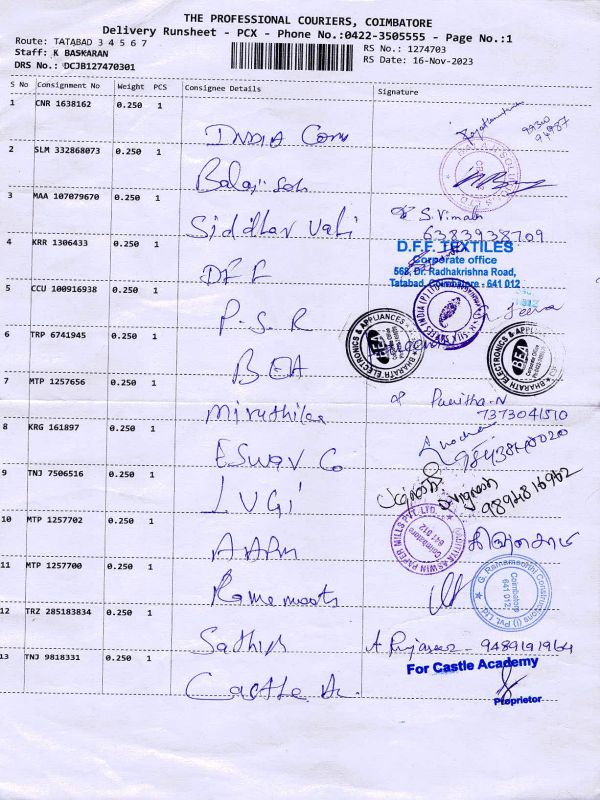 THE PROFESSIONAL COURIERS, COIMBATORE
Delivery Runsheet - PCX - Phone No.:0422-3505555 - Page No.:1
Route: TATABAD 3 4 5 6 7
Staff: K BASKARAN
DRS No.: DCJB127470301
RS No.: 1274703
RS Date: 16-Nov-2023
S No Consignment No Weight PCS Consignee Details Signature
1 CNR 1638162 0.250 1
INDIA Com
2 SLM 332868073 0.250 1
Balaji
3 MAA 107079670 0.250 1
Siddhar Vahi S. Vimal
6383938709
4 KRR 1306433 0.250 1
DFF
D.F.F. TEXTILES
Corporate office
568, Dr. Radhakrishna Road,
Tatabad, Coimbatore - 641 012
5 CCU 100916938 0.250 1
P.S.R
6 TRP 6741945 0.250 1
BEA
BHARATH ELECTRONICS & APPLIANCES
BEA
BHARATH ELECTRONICS & APPLIANCES
BEA
7 MTP 1257656 0.250 1
Miruthilaa Punitha.N
7373041510
8 KRG 161897 0.250 1
ESWAR Co
9 TNJ 7506516 0.250 1
LUGI
Vignesh
9894816962
10 MTP 1257702 0.250 1
AARM
ASWIN PAPER MILLS PVT. LTD.
Coimbatore
641 012
11 MTP 1257700 0.250 1
G. Ratnamoorthi Constructions (I) Pvt. Ltd.
Coimbatore
641 012
12 TRZ 285183834 0.250 1
Sathish 9489191964
13 TNJ 9818331 0.250 1
Castle A.
For Castle Academy
Proprietor